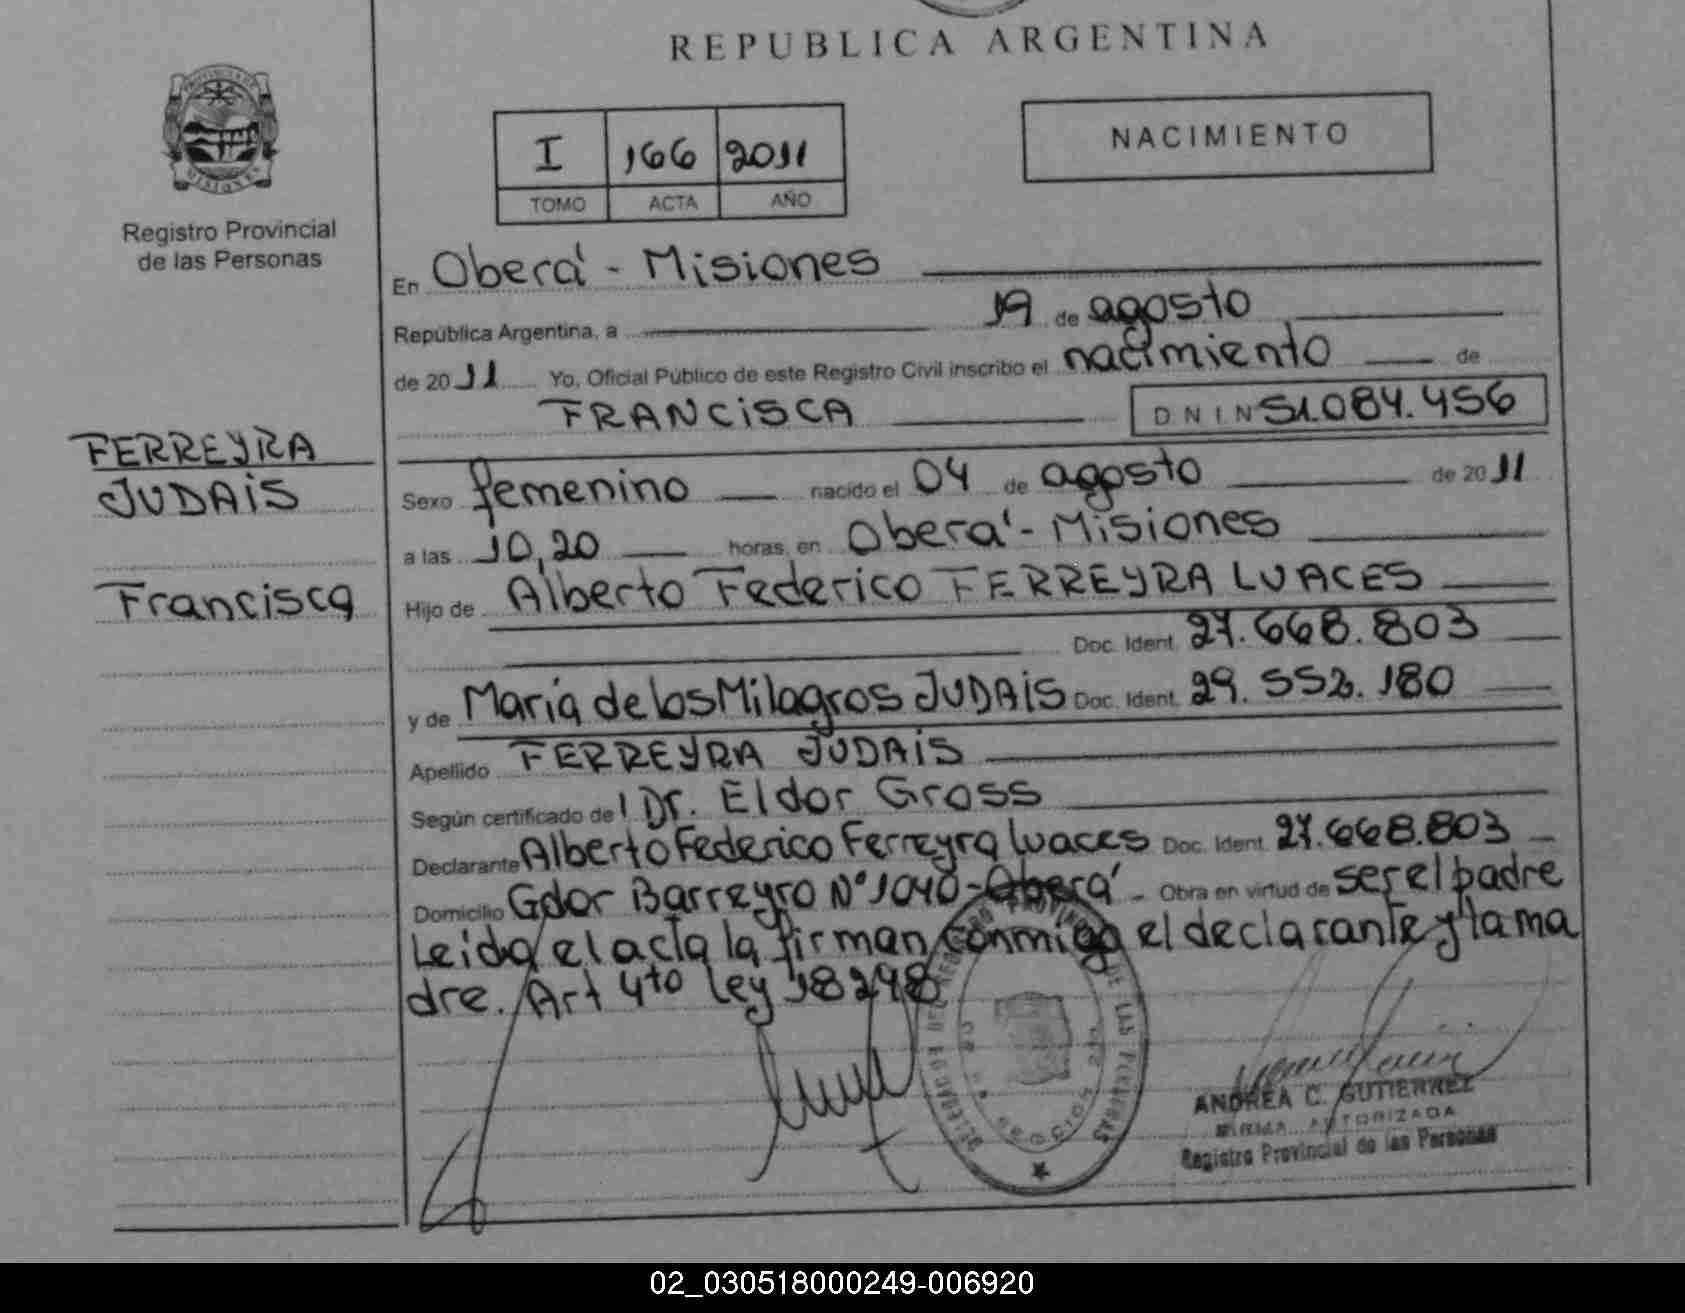 REPUBLICA ARGENTINA
PROVINCIA DE
MISIONES
Registro Provincial
de las Personas
I 166 2011
TOMO ACTA AÑO
NACIMIENTO
En Oberá - Misiones
República Argentina, a 19 de agosto
de 2011 Yo, Oficial Público de este Registro Civil inscribo el nacimiento de
FRANCISCA DNI N 51.084.456
FERREYRA
JUDAIS
Francisca
Sexo femenino nacido el 04 de agosto de 2011
a las 10,20 horas, en Oberá - Misiones
Hijo de Alberto Federico FERREYRA LUACES
Doc. Ident. 27.668.803
y de María de los Milagros JUDAIS Doc. Ident. 29.552.180
Apellido FERREYRA JUDAIS
Según certificado del Dr. Eldor Gross
Declarante Alberto Federico Ferreyra Luaces Doc. Ident. 27.668.803
Domicilio Gdor Barreyro N° 1040 - Oberá - Obra en virtud de ser el padre
Leida el acta la firman conmigo el declarante y la ma
dre. Art 4to ley 18248
REGISTRO PROVINCIAL DE LAS PERSONAS
ANDREA C. GUTIERREZ
FIRMA AUTORIZADA
Registro Provincial de las Personas
02_030518000249-006920